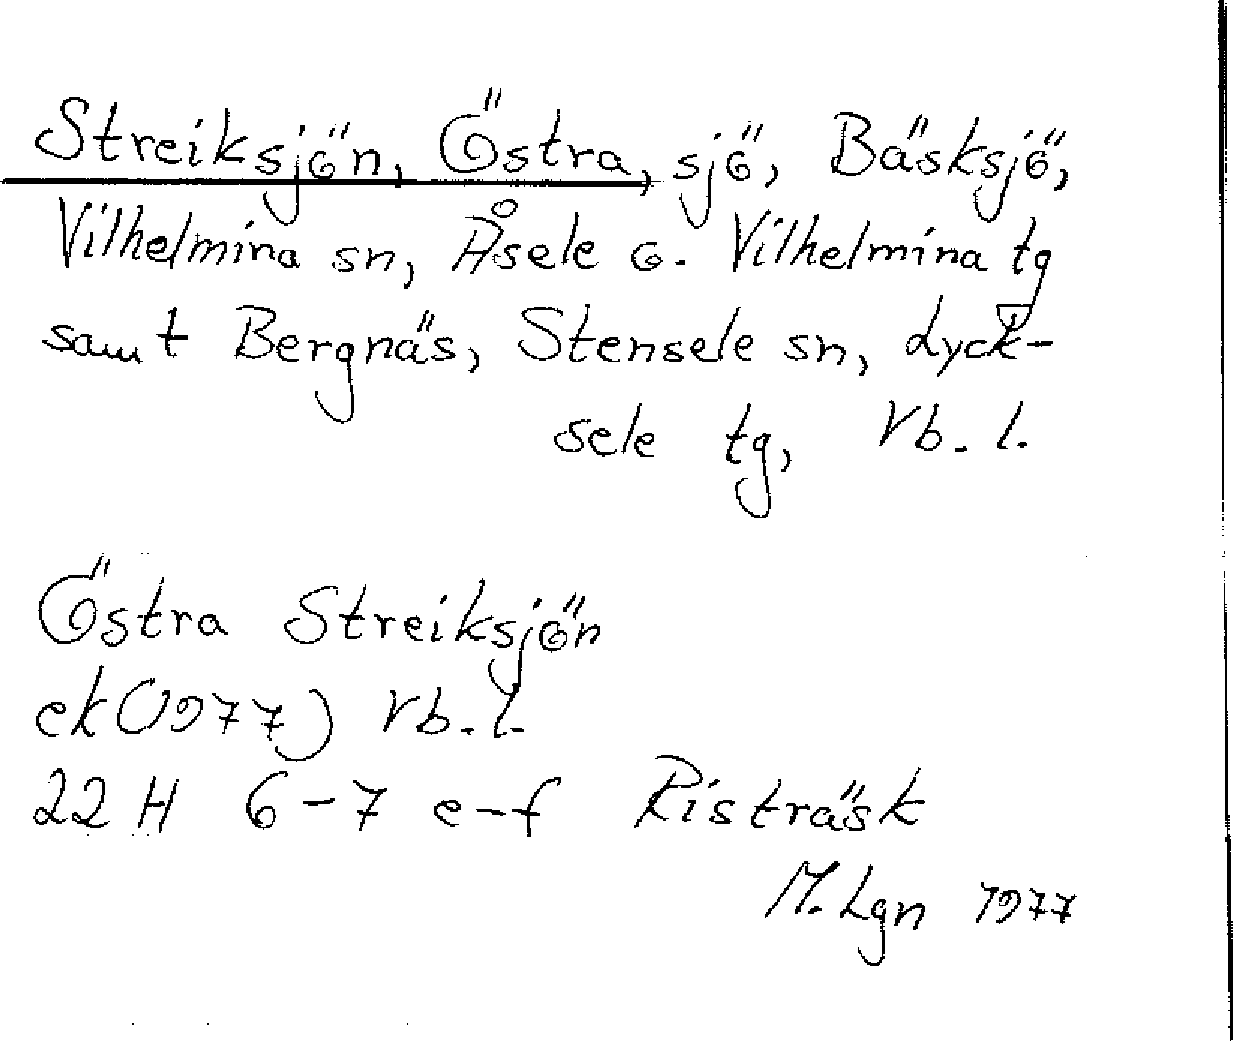 Streiksjön, Östra, sjö, Bäsksjö,
Vilhelmina sn, Åsele o. Vilhelmina tg
samt Bergnäs, Stensele sn, Lyck-
sele tg, Vb. l.
Östra Streiksjön
ek(1977) Vb. l.
22 H 6-7 e-f Risträsk
M. Lgn 1977